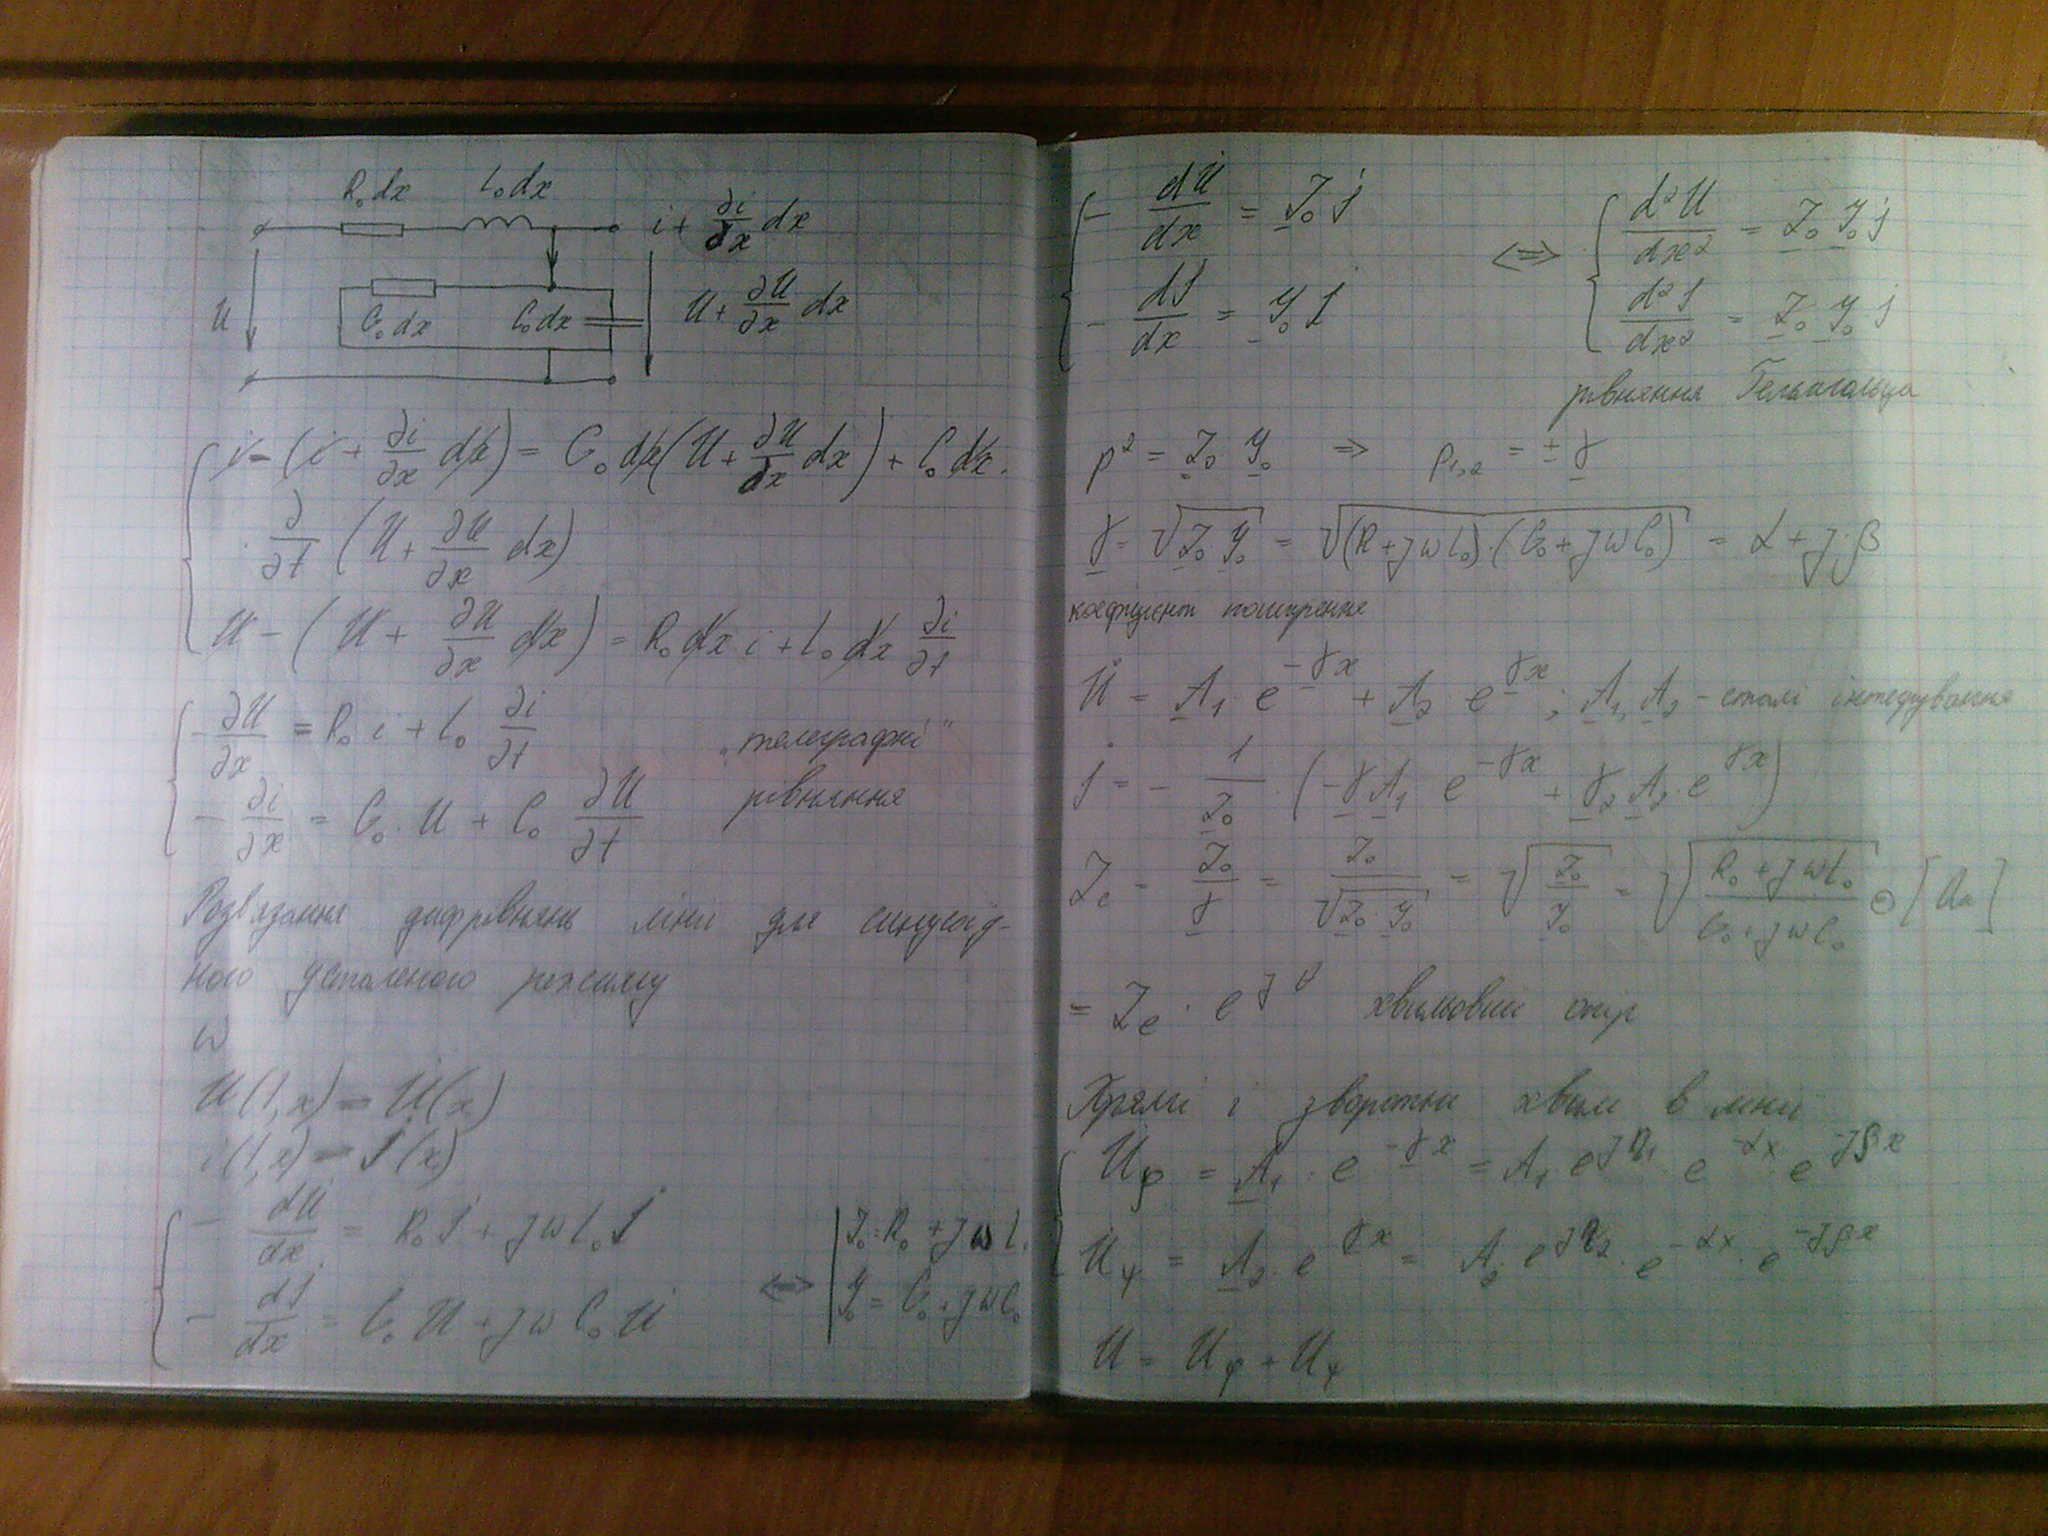 R₀dx L₀dx
i + ∂i/∂x dx
U G₀dx C₀dx U + ∂U/∂x dx
i - (i + ∂i/∂x dx) = G₀ dx (U + ∂U/∂x dx) + C₀ dx ·
· ∂/∂t (U + ∂U/∂x dx)
U - (U + ∂U/∂x dx) = R₀ dx · i + L₀ dx ∂i/∂t
- ∂U/∂x = R₀ i + L₀ ∂i/∂t „телеграфні"
- ∂i/∂x = G₀ · U + C₀ ∂U/∂t рівняння
Розвязання дифрівнянь лінії для синусоїд-
ного усталеного режиму
ω
U(t,x) = U̇(x)
i(t,x) = İ(x)
- dU̇/dx = R₀ İ + jωL₀ İ
- dİ/dx = G₀ U̇ + jωC₀ U̇
<=> | Z₀ = R₀ + jωL
Y₀ = G₀ + jωC₀
- dU̇/dx = Z₀ İ <=> d²U/dx² = Z₀ Y₀ İ
- dİ/dx = Y₀ İ d²İ/dx² = Z₀ Y₀ İ
рівняння Гельмгольца
p² = Z₀ Y₀ => p₁,₂ = ± γ
γ = √(Z₀ Y₀) = √((R + jωL₀)·(G₀ + jωC₀)) = α + j·β
коефіцієнт поширення
U̇ = A₁ e^(-γx) + A₂ e^(γx); A₁, A₂ - сталі інтегрування
İ = - 1/Z₀ · (-γ A₁ e^(-γx) + γ₂ A₂ · e^(γx))
Zc = Z₀/γ = Z₀/√(Z₀·Y₀) = √(Z₀/Y₀) = √((R₀ + jωL₀)/(G₀ + jωC₀)) = [Ом]
= Zc · e^(jθ) хвильовий опір
Прямі і зворотні хвилі в лінії
U̇φ = A₁ · e^(-γx) = A₁ e^(jη₁) · e^(-αx) e^(-jβx)
U̇ψ = A₂ · e^(γx) = A₂ · e^(jη₂) · e^(-αx) · e^(-jβx)
U̇ = U̇φ + U̇ψ